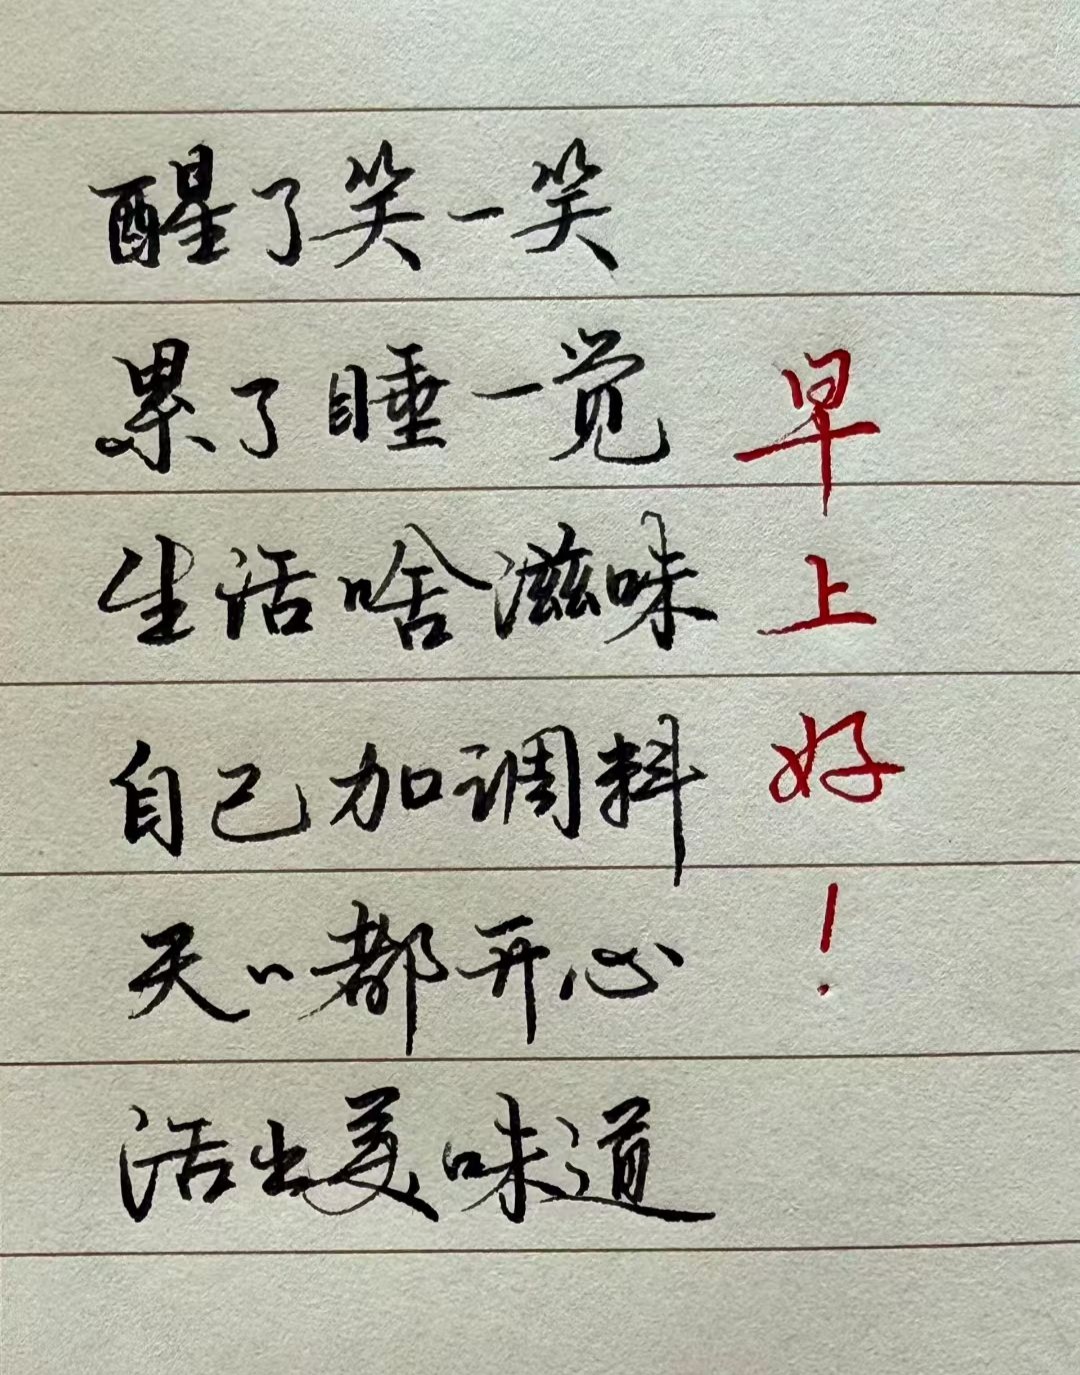 醒了笑一笑
累了睡一觉
生活啥滋味
自己加调料
天天都开心
活出美味道
早上好！